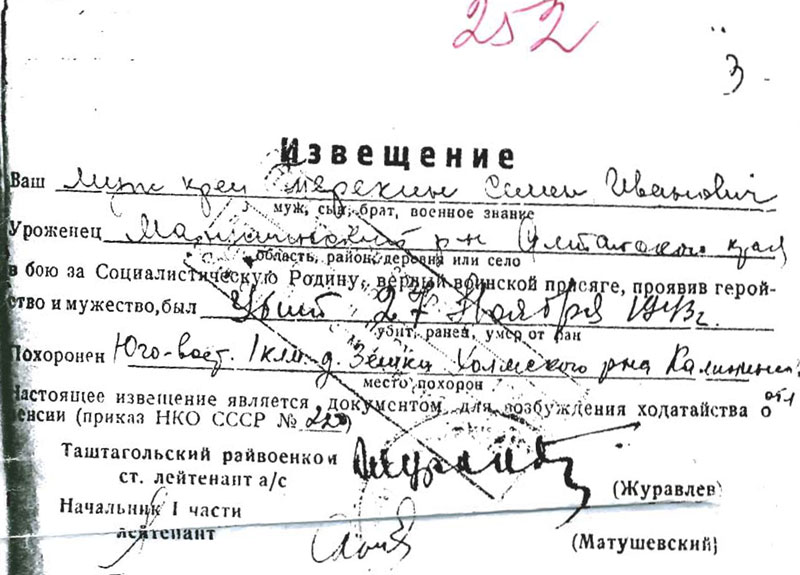 252
3
Извещение
Ваш муж кр-ец Мерекин Семен Иванович
муж, сын, брат, военное звание
Уроженец рн Алтайского края
область, район, деревня или село
в бою за Социалистическую Родину, верный воинской присяге, проявив герой-
ство и мужество, был Убит 27 Ноября 1943г.
убит, ранен, умер от ран
Похоронен Юго-вост. 1 клм. д. Зешки Холмского р-на Калининск.
место похорон обл
Настоящее извещение является документом для возбуждения ходатайства о
пенсии (приказ НКО СССР № 220)
Таштагольский райвоенком
ст. лейтенант а/с
(Журавлев)
Начальник I части
лейтенант
(Матушевский)